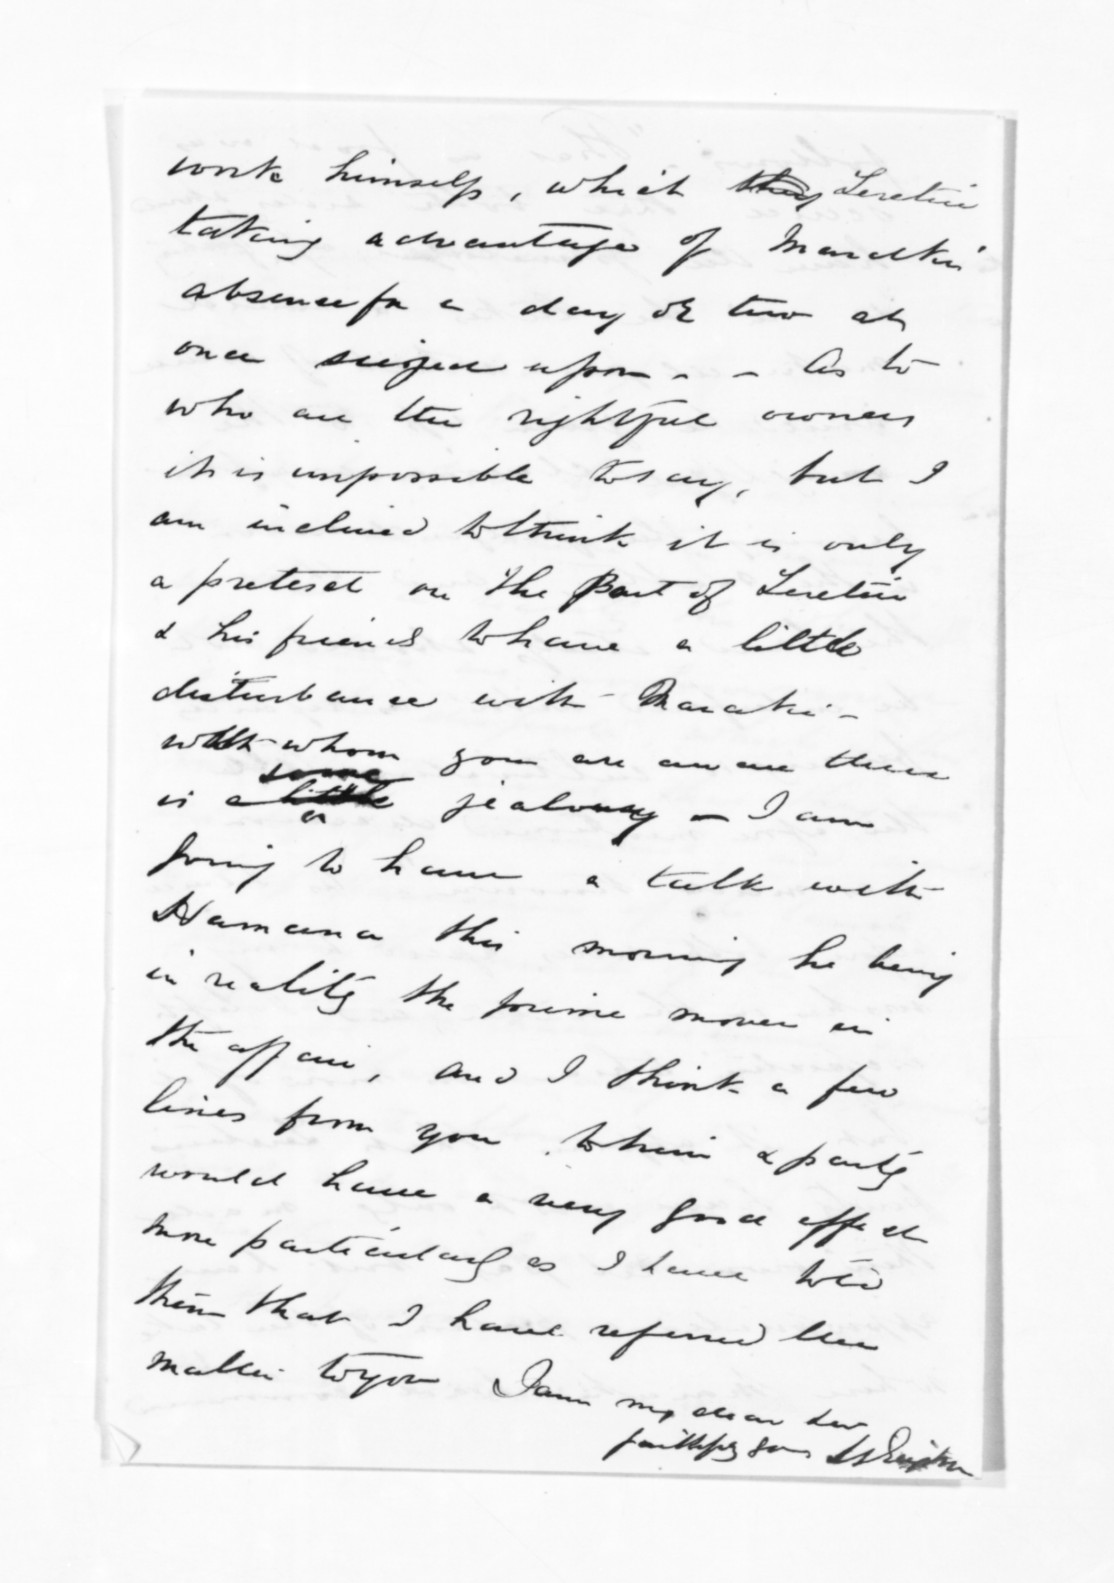 work himself, which they Teretiu
taking advantage of
absence for a day or two at
once seized upon - - As to
who are the rightful owners
it is impossible to say, but I
am inclined to think it is only
a pretext on the Part of Teretiu
& his friends to have a little
disturbance with Marakai -
with whom you are aware there
some
is a little jealousy - I am
going to have a talk with
Hamana this morning he being
in reality the prime mover in
the affair, and I think a few
lines from you to him & party
would have a very good effect
more particularly as I have told
them that I have referred the
matter to you I am my dear
faithfully yours